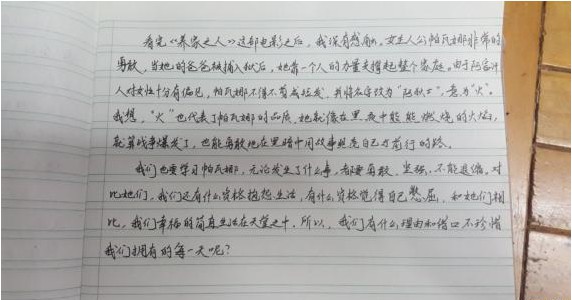 看完《养家之人》这部电影之后，我深有感触。女主人公帕瓦娜非常的
勇敢，当她的爸爸被捕入狱后，她靠一个人的力量支撑起整个家庭。由于阿富汗
人对女性十分有偏见，帕瓦娜不得不剪成短发，并将名字改为"阿伙士"，意为"火"。
我想，"火"也代表了帕瓦娜的品质，她就像在黑夜中能能燃烧的火焰，
就算战争爆发了，也能勇敢地在黑暗中用故事照亮自己前行的路。
我们也要学习帕瓦娜，无论发生了什么事，都要勇敢、坚强，不能退缩。对
比她们，我们还有什么资格抱怨生活，有什么资格觉得自己憋屈，和她们相
比，我们幸福的简直生活在天堂之中，所以，我们有什么理由和借口不珍惜
我们拥有的每一天呢？